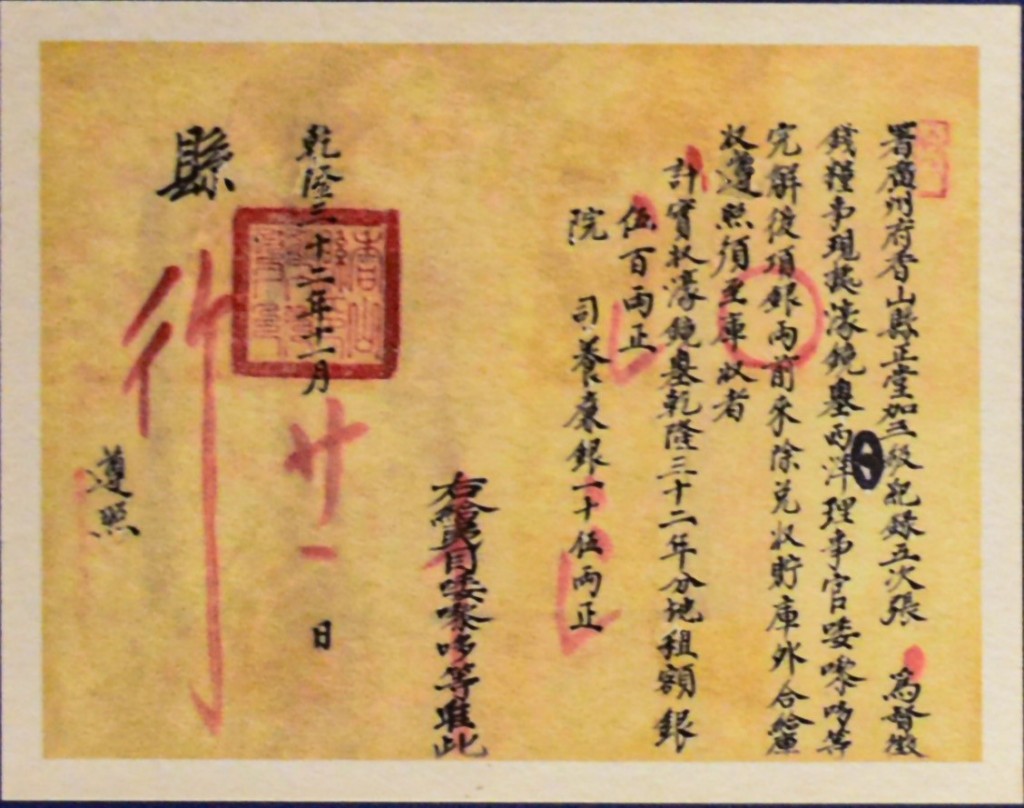 署廣州府香山縣正堂加三級紀錄五次張 為督徵
錢糧事現據濠鏡墺西洋理事官唩嚟哆等
完解後項銀両前來除兌収貯庫外合給庫
収遵照須至庫収者
計實収濠鏡墺乾隆三十二年分地租額銀
伍百両正
院 司養廉銀一十伍両正
右給夷目唩嚟哆等准此
乾隆三十二年十一月 廿一 日
縣 行
遵照